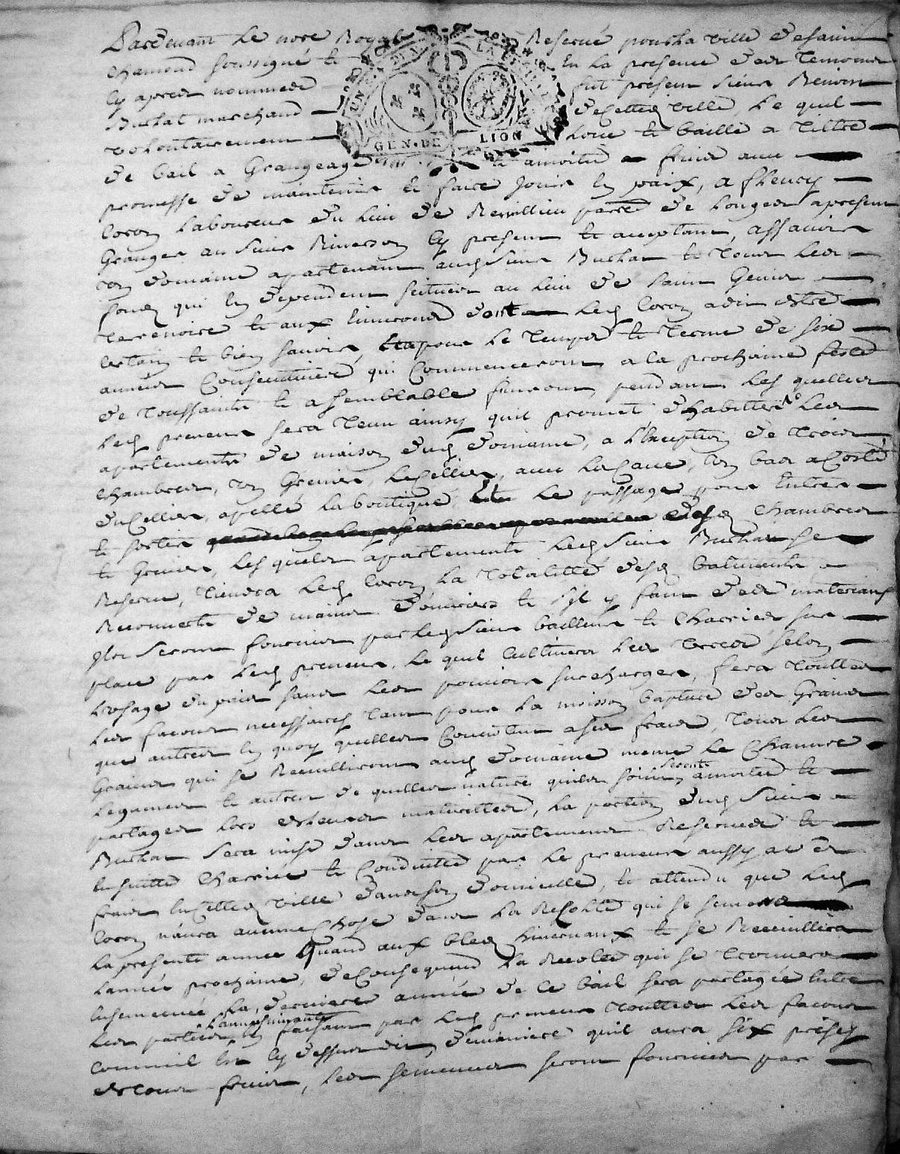 Pardevant le nore Royal Reservé pour la ville de saint
chamond soussigné et En la presence des Temoins
Cy apres nommés fut present sieur Benoit
Buchat marchand de cette ville Le quel
volontairement Loue et baille a Tiltre
de bail a Grangeage a moitié fruit avec
promesse de maintenir et faire Jouir En paix, a fleury
Coron Laboureur du Lieu de parsse de Longes apresent
Granger au sieur Cy present et acceptant, assavoir
un domaine apartenant audsieur Buchat et tous Les
fonds qui En dependent scitués au Lieu de saint Genis
Terrenoire et aux Environs dont Led Coron a dit Estre
Certain et bien savoir, pour Le Temps et Terme de six
années Consecutives qui Commenceront a la prochaine feste
de Toussaints et a semblable finiront, pendant Les quelles
Led preneur sera Tenu ainsy quil promet d'habitter Les
apartements de maison dud domaine, a L'Exception de Trois
Chambres, un Grenier, Le Cellier, avec La Cave, un bas a Costé
du Cellier, apellé La boutique, Le passage pour Entrer
et sortir desd Chambres
et Grenier, Les quels apartements Led sieur Buchat se
Reserve, Tiendra Led Coron La Totalitté desd batiments
Recouverts de mains d'ouvriers et s'il y faut des materiaux
Ils seront fournis par Led sieur bailleur et Charriés sur
place par Led preneur, Le quel Cultivera Les Terres selon
L'usage du païs sans Les pouvoir surcharger, fera Touttes
Les facons necessaires Tant pour La moisson Batture des Grains
que autres En quoy quelles Consistent a ses frais, Tous Les
Grains qui se Recuillirons aud domaine meme Le Chanvre
Legumes et autres de quelles nature quils soint seront a moitié et
partagés Lors de Leurs maturittés, La portion dud sieur
Buchat sera mise dans Les apartements Reservés et
Ensuitte Charriée et Conduitte par Le preneur aussy a ses
frais En cette ville dans son domicille, et attendu que Led
Coron n'aura aucune Chose dans La Recolte qui se semera
La presente annee Quand aux bleds hivernaux et se Recuillira
L'année prochaine, de Consequand La Recolte qui se Trouvera
Ensemencée La derniere année de ce bail sera partagée Entre
Les parties L'année suivante En faisant par Led preneur Touttes Les facons
Comme il Est Cy dessus dit, de maniere quil aura six prises
de tous fruits, Les semences seront fournies par
UN GEN. DE LION